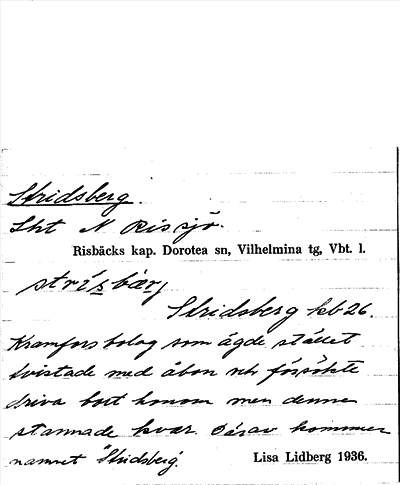 Stridsberg.
Lht N Rissjö.
Risbäcks kap. Dorotea sn, Vilhelmina tg, Vbt. l.
strísbærj
Stridsberg kb 26.
Kramfors bolag som ägde stället
tvistade med åbon och försökte
driva bort honom men denne
stannade kvar. Därav kommer
namnet "Stridsberg".
Lisa Lidberg 1936.